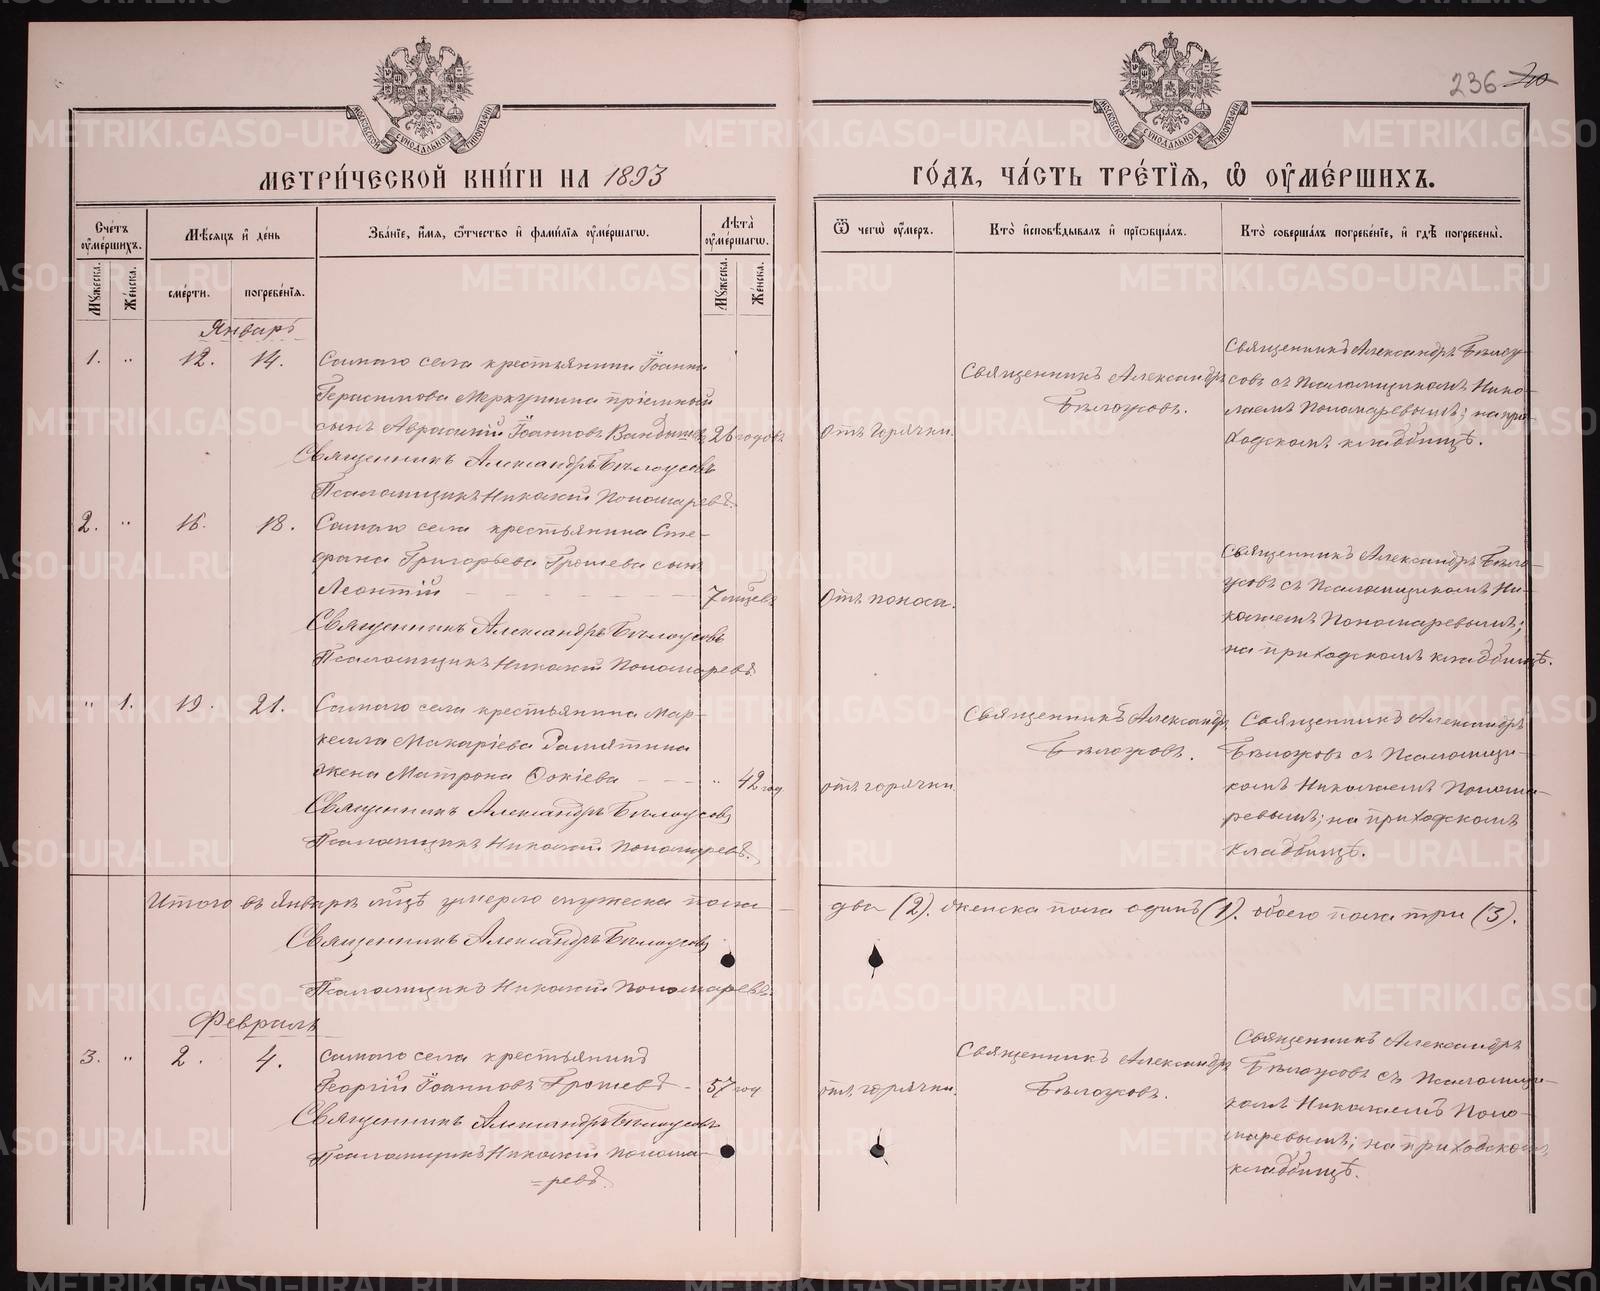 236
МЕТРИ́ЧЕСКОЙ КНИ́ГИ НА 1893
ГО́ДЪ, ЧА́СТЬ ТРЕ́ТЇѦ, Ѡ҆ ОУ҆МЕ́РШИХЪ.
Сче́тъ оу҆ме́ршихъ.
Мꙋ́жеска.
Же́нска.
Мѣ́сяцъ и҆ де́нь
сме́рти.
погребе́нїя.
Зва́нїе, и҆́мя, ѻ҆́тчество и҆ фами́лїя оу҆ме́ршагѡ.
Лѣ́та оу҆ме́ршагѡ.
Мꙋ́жеска.
Же́нска.
Ѿ чегѡ̀ оу҆́меръ.
Кто̀ и҆сповѣ́дывалъ и҆ прїѡбща́лъ.
Кто̀ соверша́лъ погребе́нїе, и҆ гдѣ̀ погребены̀.
Январь
1. " 12. 14.
Самаго села крестьянина Іоанна
Герасимова Меркушина пріемный
сынъ Аврамій Іоанновъ 26 годовъ
Священникъ Александръ Бѣлоусовъ
Псаломщикъ Николай Пономаревъ.
отъ горячки.
Священникъ Александръ
Бѣлоусовъ.
Священникъ Александръ Бѣлоу-
совъ съ Псаломщикомъ Нико-
лаемъ Пономаревымъ; на при-
ходскомъ кладбищѣ.
2. " 16. 18.
Самаго села крестьянина Сте-
фана Григорьева Грошева сынъ
Леонтій 7 мѣсяц.
Священникъ Александръ Бѣлоусовъ
Псаломщикъ Николай Пономаревъ
отъ поноса.
Священникъ Александръ Бѣло-
усовъ съ Псаломщикомъ Ни-
колаемъ Пономаревымъ;
на приходскомъ кладбищѣ.
" 1. 19. 21.
Самаго села крестьянина Мар-
келла Макаріева
жена Матрона " 42 год
Священникъ Александръ Бѣлоусовъ
Псаломщикъ Николай Пономаревъ.
отъ горячки
Священникъ Александръ
Бѣлоусовъ.
Священникъ Александръ
Бѣлоусовъ съ Псаломщи-
комъ Николаемъ Понома-
ревымъ; на приходскомъ
кладбищѣ.
Итого въ Январѣ мцѣ умерло мужеска пола
два (2). женска пола одинъ (1). обоего пола три (3).
Священникъ Александръ Бѣлоусовъ
Псаломщикъ Николай Пономаревъ.
Февраль
3. " 2. 4.
Самаго села крестьянинъ
Георгій Іоанновъ Грошевъ - 57 год
Священникъ Александръ Бѣлоусовъ
Псаломщикъ Николай Понома-
=ревъ.
отъ горячки.
Священникъ Александръ
Бѣлоусовъ.
Священникъ Александръ
Бѣлоусовъ съ Псаломщи-
комъ Николаемъ Поно-
маревымъ; на приходскомъ
кладбищѣ.
METRIKI.GASO-URAL.RU